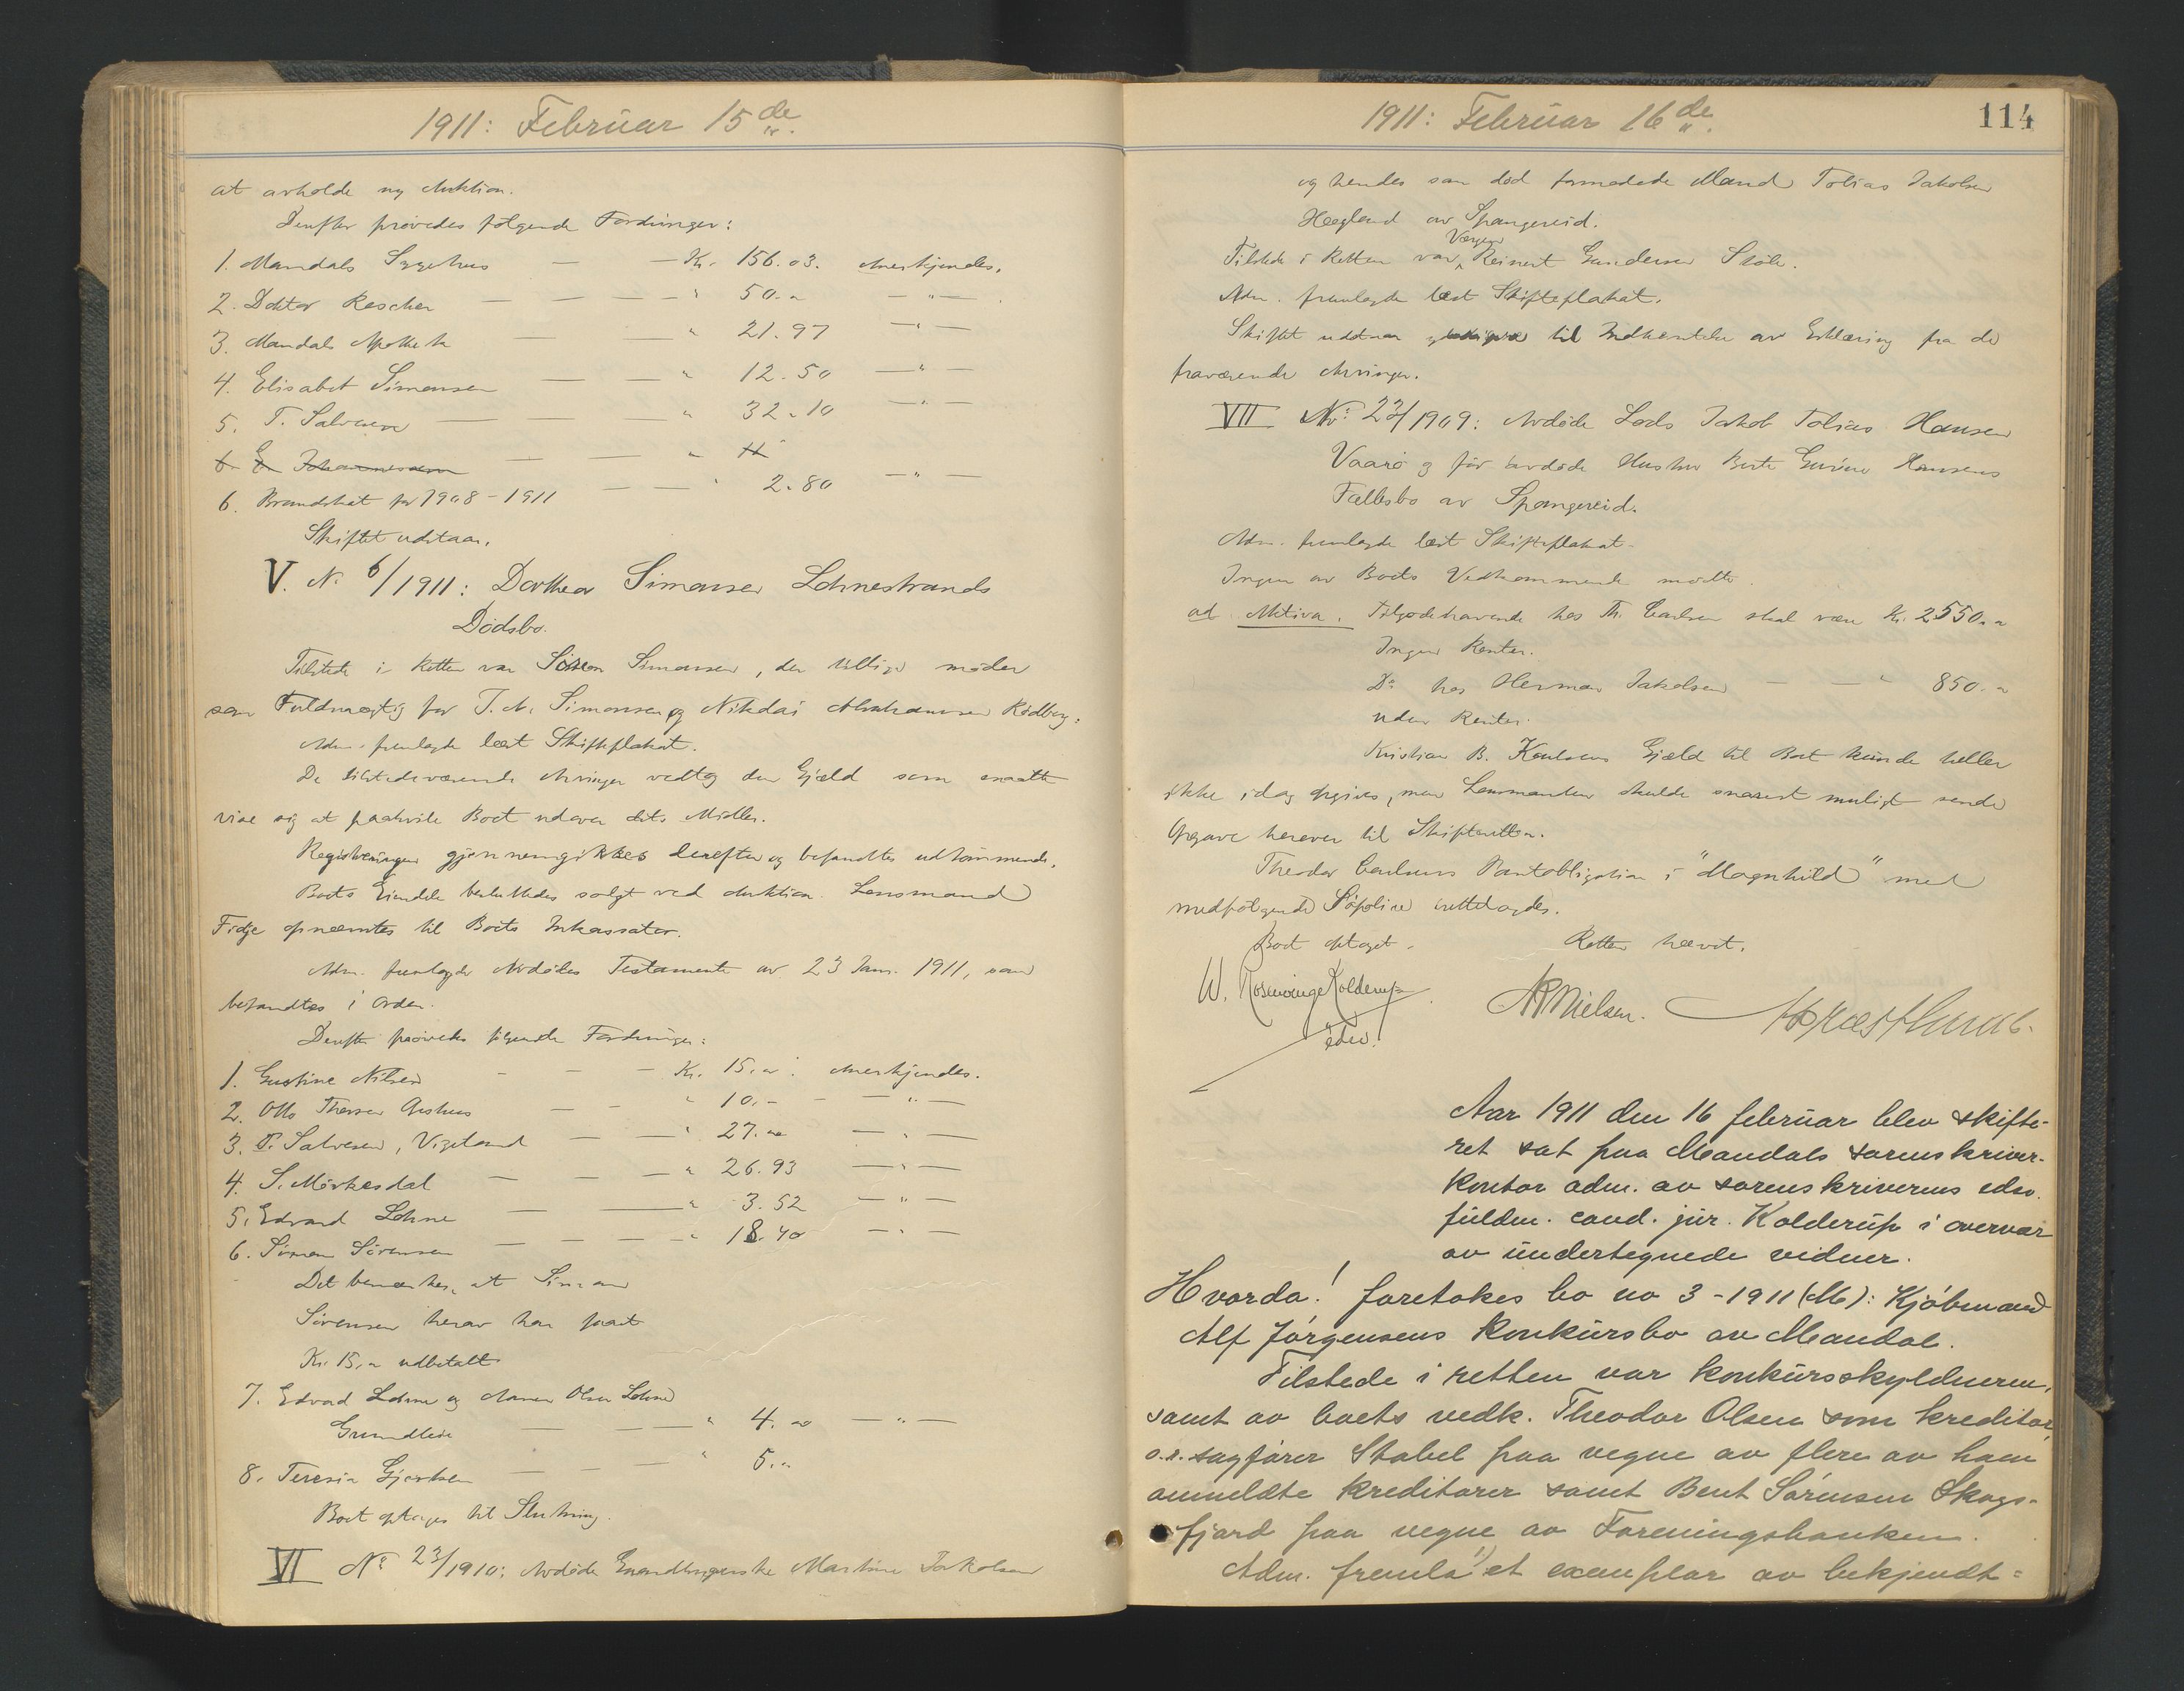 1911: Februar 15de
at avholde ny Auktion.
Derefter prøvedes følgende Fordringer:
1. Mandals Sygehus — — Kr. 156.03. Anerkjendes.
2. Doktor Rescher — — — — " 50.- — " —
3. Mandals Apothek — — — " 21.97 — " —
4. Elisabet Simonsen — — — " 12.50 — " —
5. T. Salvesen — — — " 32.10 — " —
6. E. Johannessen — — — "
6. Brandskat for 1908-1911 — — " 2.80 — " —
Skiftet udstaar.
V. No 6/1911: Dorthea Simonsen Lohnestrands
Dødsbo.
Tilstede i Retten var Simon Simonsen, der tillige møder
som Fuldmægtig for T. A. Simonsen og Nikolai Abrahamsen Rødberg.
Adm. fremlagde læst Skifteplakat.
De tilstedeværende Arvinger vedtog den Gjæld som maatte
vise sig at paahvile Boet udover dets Midler.
Registreringen gjennemgikkes derefter og befandtes udtømmende.
Boets Eiendele besluttedes solgt ved Auktion. Lensmand
Fidje opnævntes til Boets Inkassator.
Adm. fremlagde Avdødes Testamente av 23 Jan. 1911, som
befandtes i Orden.
Derefter prøvedes følgende Fordringer:
1. Gustine Nilsen - - — Kr. 15.- . Anerkjendes.
2. Otto Thorsen — - " 10.- - — " —
3. T. Salvesen, Vigeland — — " 27.00 — " —
4. S. Mørkesdal — — — " 26.93 — " —
5. Edvard Lohne — — " 3.52 — " —
6. Simon Sørensen — — — — " 18.40 — " —
Det bemærkes, at Simon
Sørensen herav har faaet
Kr. 15.- udbetalt
7. Edvard Lohne og Olsen Lohne
Grundleie — — " 4.00 — " —
8. Teresia Gjertsen — — — " 5.-
Boet optages til Slutning.
VI No 23/1910: Avdøde Martine Jakobsen
1911: Februar 16de
114
og hendes som død formodede Mand Tobias Jakobsen
Hægland av Spangereid.
Tilstede i Retten var Værgen Reinert Gundersen Støle.
Adm. fremlagde læst Skifteplakat.
Skiftet udstaar til Indhentelse av Erklæring fra de
fraværende Arvinger.
VII No 22/1909: Avdøde Lods Jakob Tobias Hansen
Vaarø og før avdøde Hustru Berte Gurine Hansens
Fællesbo av Spangereid.
Adm. fremlagde læst Skifteplakat.
Ingen av Boets Vedkommende mødte.
ad Aktiva. Tilgodehavende hos Th. Carlsen skal være Kr. 2550.-
Ingen Renter.
Do hos Herman Jakobsen — — " 850.-
uden Renter.
Kristian B. Karlsens Gjæld til Boet kunde heller
ikke idag opgives, men Lensmanden skulde snarest muligt sende
Opgave herover til Skifteretten.
Theodor Carlsens Pantobligation i "Magnhild" med
medfølgende Søpolice fremlagdes.
Boet optaget. Retten hævet.
W. Rosenvinge Kolderup
edsv.
Nielsen.
Aar 1911 den 16 februar blev skifte-
ret sat paa Mandals sorenskriver-
kontor adm. av sorenskriverens edsv.
fuldm. cand. jur. Kolderup i overvær
av undertegnede vidner.
Hvorda! foretokes bo no 3-1911 (M): Kjøbmand
Alf Jørgensens konkursbo av Mandal.
Tilstede i retten var konkursskyldneren,
samt av boets vedk. Theodor Olsen som kreditor,
o.r.sagfører Stabel paa vegne av flere av ham
anmeldte kreditorer samt Bent Sørensen Skogs-
fjord paa vegne av Foreningsbanken.
Adm. fremla 1) et exemplar av bekjendt=